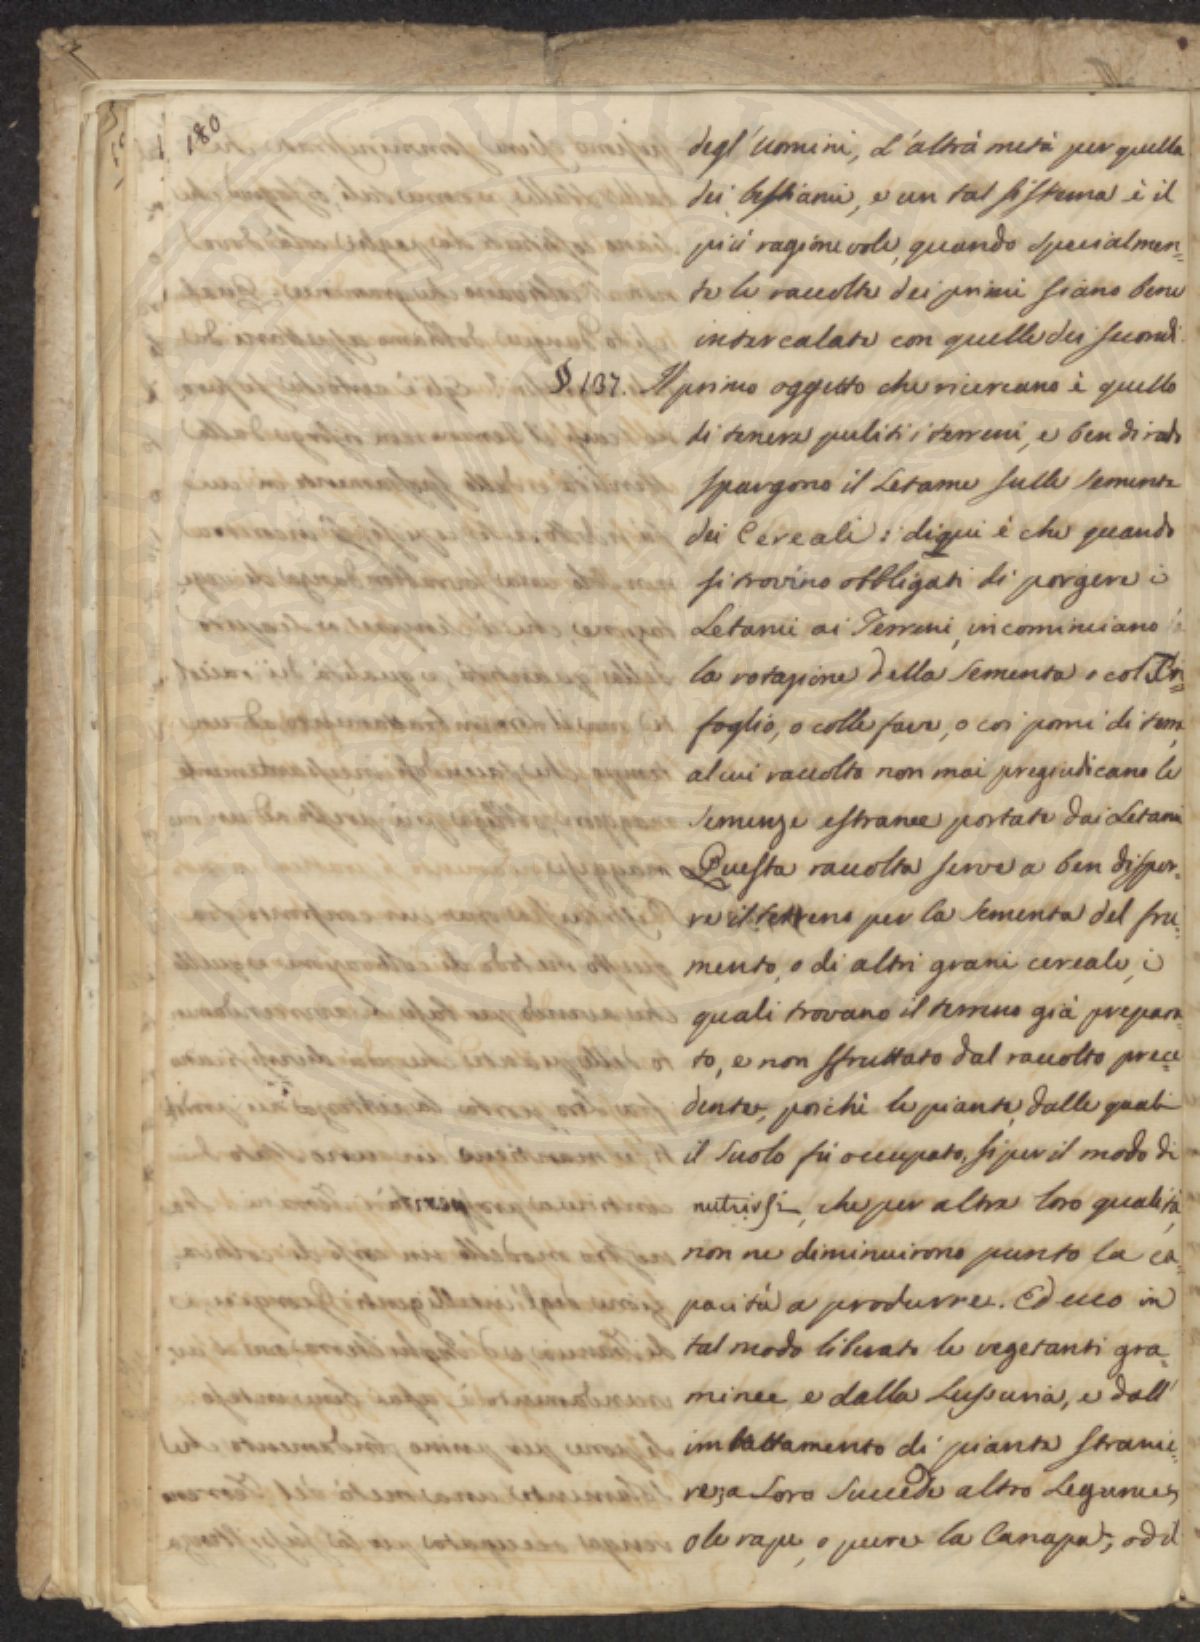 180
degl'Uomini, L'altra metà per quella
dei bestiami, e un tal sistema è il
più ragionevole, quando specialmen=
te le raccolte dei primi siano bene
intercalate con quelle dei secondi.
§. 137. Il primo oggetto che ricercano è quello
di tenere puliti i terreni, e ben di rado
spargono il Letame sulle semente
dei Cereali: di qui è che quando
si trovino obbligati di porgere i
Letami ai Terreni, incominciano
la rotazione della sementa o col Tri=
foglio, o colle fave, o coi pomi di terra,
al cui raccolto non mai pregiudicano le
semenze estranee portate dai Letami
Questa raccolta serve a ben dispor=
re il terreno per la sementa del fru=
mento, o di altri grani cereale, i
quali trovano il terreno già prepara=
to, e non sfruttato dal raccolto prece=
dente, poichè le piante, dalle quali
il suolo fù occupato, sì per il modo di
nutrirsi, che per altre loro qualità,
non ne diminuirono punto la ca=
pacità a produrre. Ed ecco in
tal modo liberate le vegetanti gra=
minee e dalla Lussuria, e dall'
imbattamento di piante stranie=
re; a Loro succede altro Legume,
o le rape, o pure la Canapa; od il